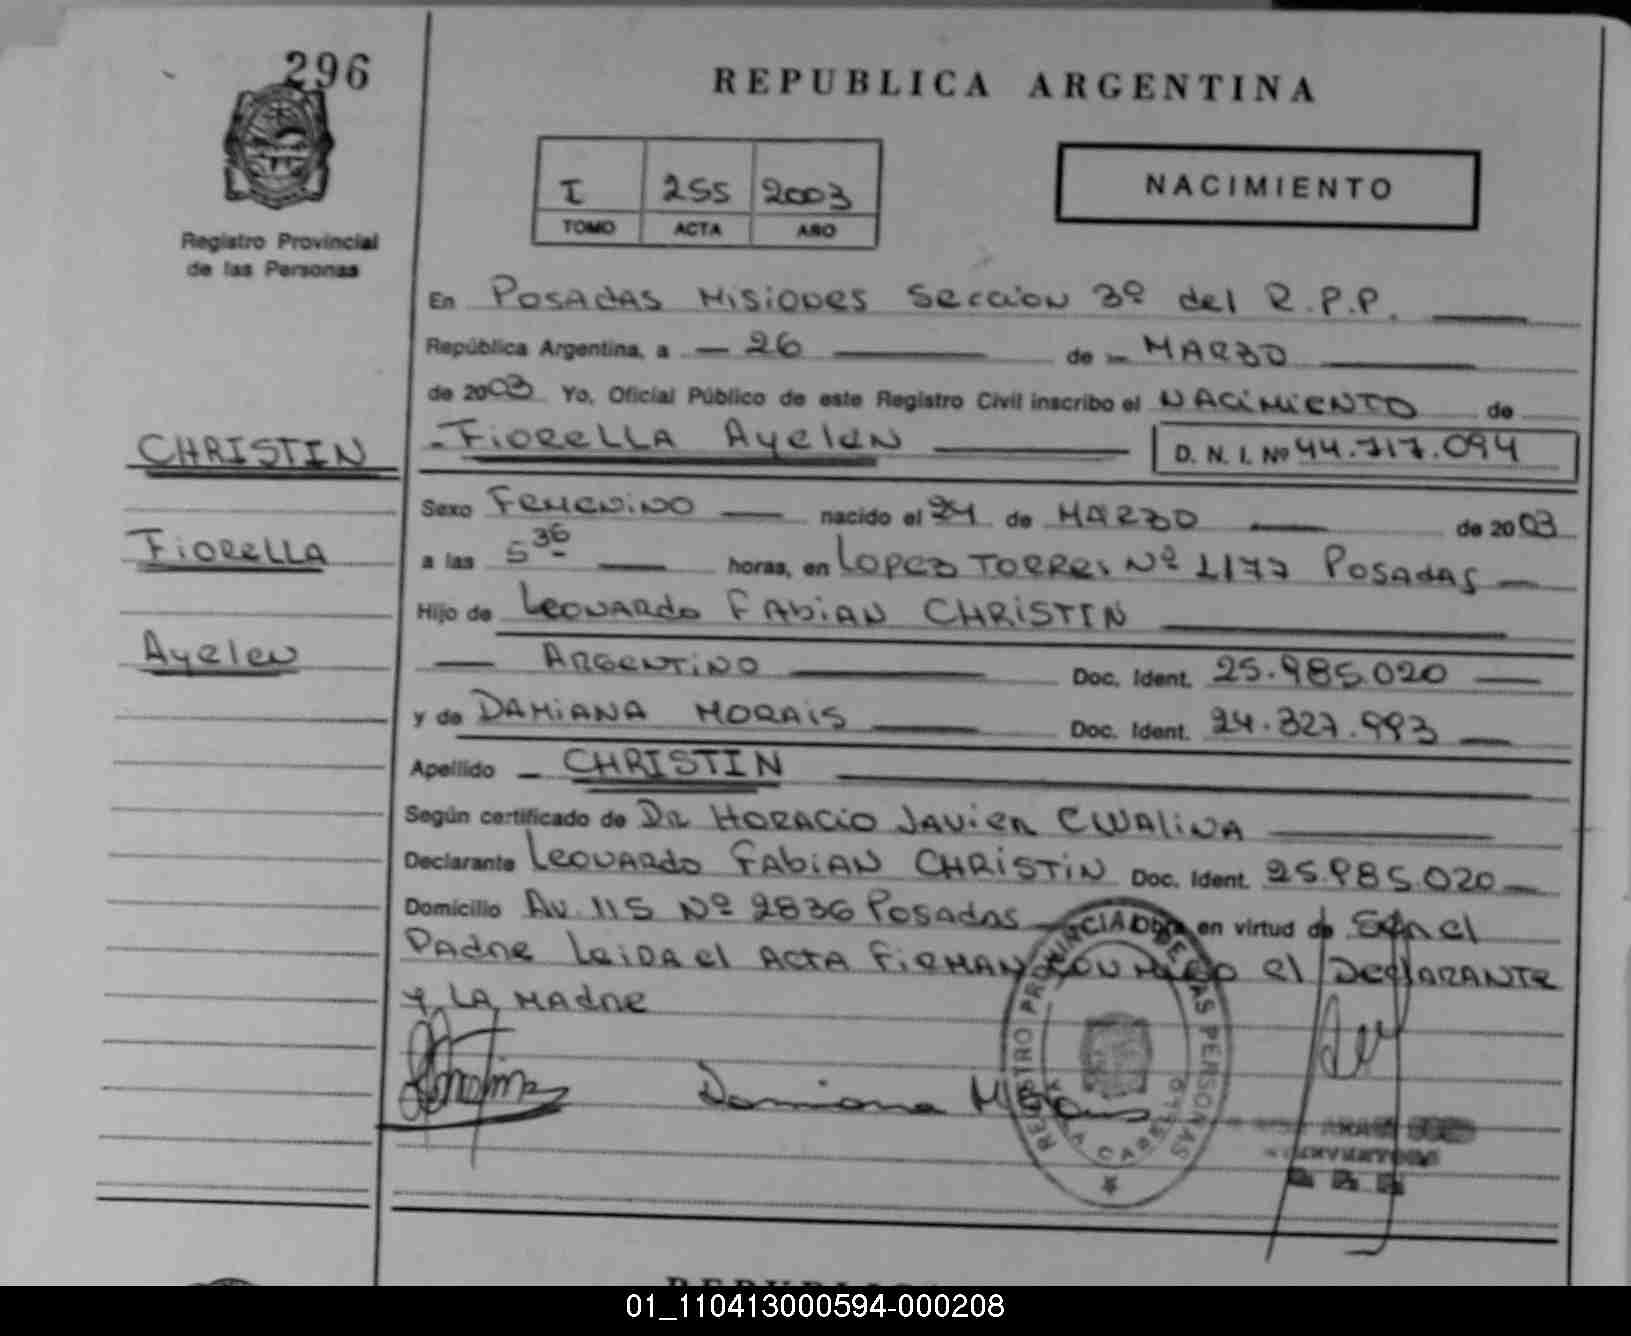 296
REPUBLICA ARGENTINA
I 255 2003
TOMO ACTA AÑO
NACIMIENTO
Registro Provincial
de las Personas
En POSAdAS MISIONES Sección 3º del R.P.P.
República Argentina, a 26 de MARZO
de 2003 Yo, Oficial Público de este Registro Civil inscribo el NACIMIENTO de
CHRISTIN
Fiorella Ayelen D. N. I. Nº 44.717.094
Sexo Femenino nacido el 24 de MARZO de 2003
Fiorella
a las 5 36 horas, en Lopez Torres Nº 1177 Posadas
Hijo de Leonardo Fabian CHRISTIN
Ayelen
Argentino Doc. Ident. 25.985.020
y de DAMIANA MORAIS Doc. Ident. 24.327.993
Apellido CHRISTIN
Según certificado de Dr Horacio Javier Cwalina
Declarante Leonardo Fabian CHRISTIN Doc. Ident. 25.985.020
Domicilio Av. 115 Nº 2836 Posadas Obra en virtud de Ser el
Padre Leida el Acta Firman con migo el Declarante
y LA MAdre
Damiana Morais
REGISTRO PROVINCIAL DE LAS PERSONAS
VILLA CABELLO
REPUBLICA
01_110413000594-000208